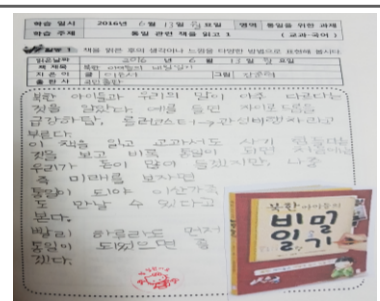 학습 일시 2016년 6월 13일 월요일 영역 통일을 위한 과제
학습 주제 통일 관련 책을 읽고 1 (교과-국어)
활동 1 책을 읽은 후의 생각이나 느낌을 다양한 방법으로 표현해 봅시다.
읽은날짜 2016년 6월 13일 월요일
책 제목 북한 아이들의 비밀일기
지은이 글 그림
출판사
북한 아이들과 우리의 말이 아주 다르다는
것을 알았다. 예를 들면 자이로드롭을
급강하탑, 롤러코스터→관성비행차라고
부른다.
이 책을 읽고 교과서도 사기 힘들다는
것을 보고 비록 통일이 되면
우리가 돈이 많이 들겠지만, 나중
즉 미래를 보자면
통일이 되야 이산가족
도 만날 수 있다고
본다.
빨리 하루라도 먼저
통일이 되었으면 좋
겠다.
북한 아이들의
비밀
일기